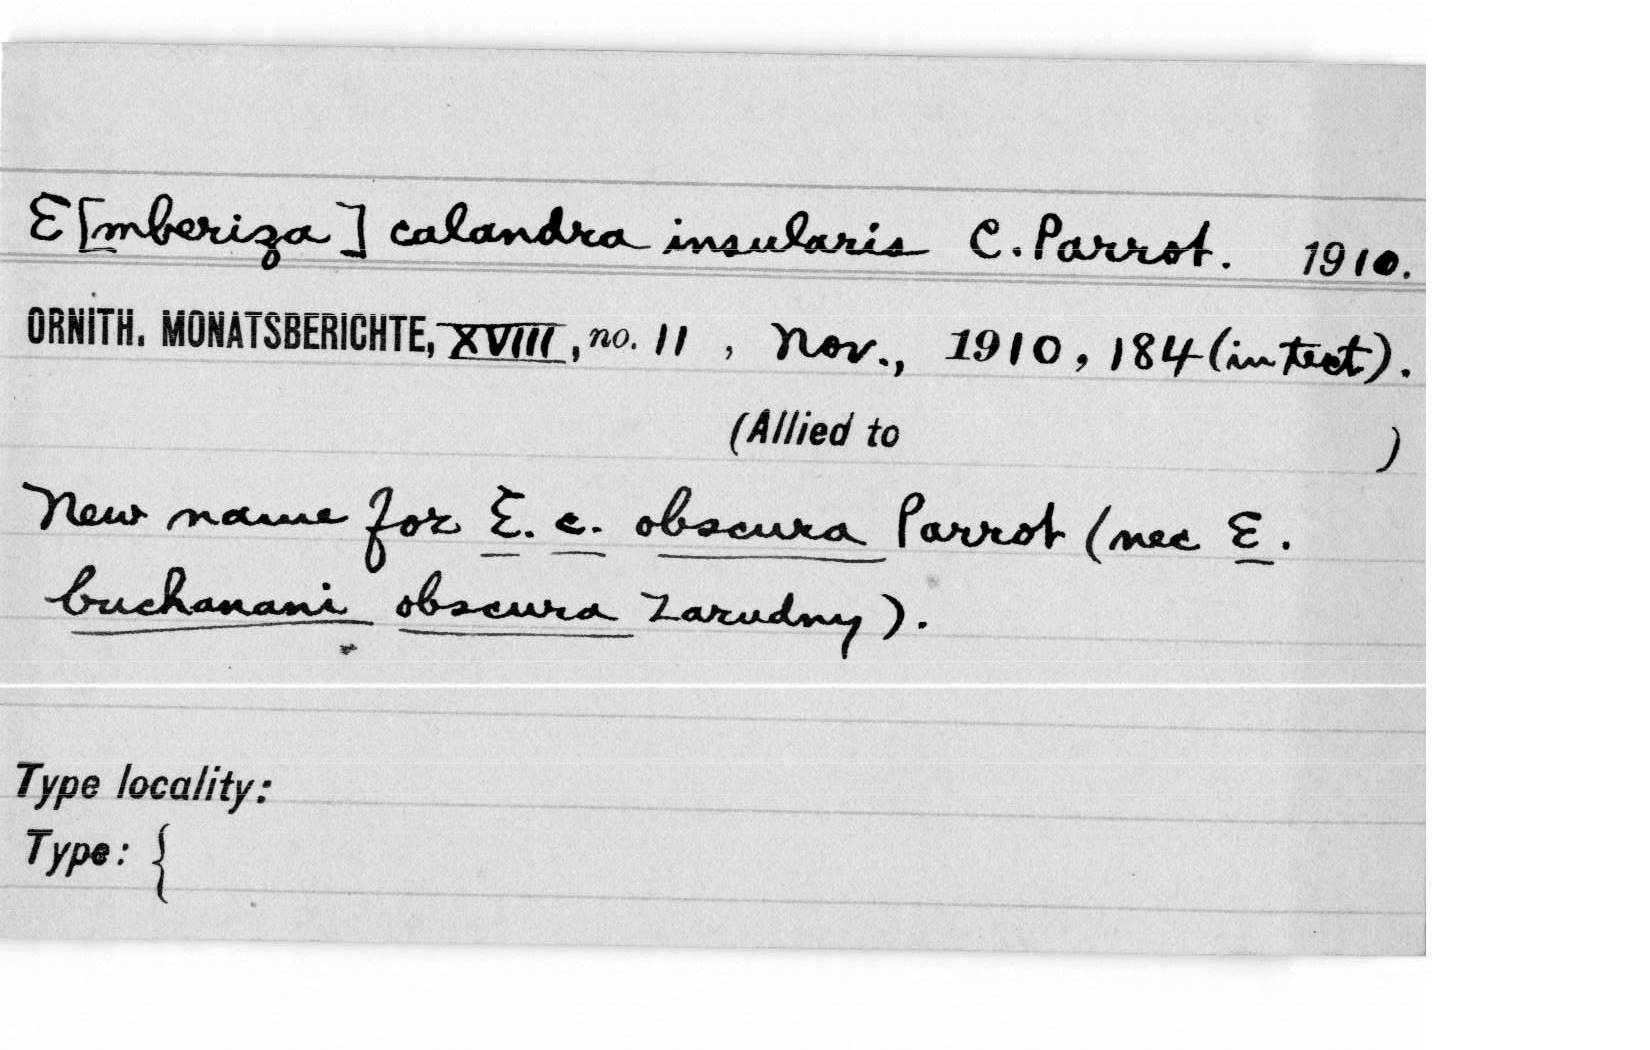 E[mberiza] calandra insularis C. Parrot. 1910.
ORNITH. MONATSBERICHTE, XVIII, no. 11, Nov., 1910, 184 (in text).
(Allied to )
New name for E. c. obscura Parrot (nec E.
buchanani obscura Zarudny).
Type locality:
Type: {